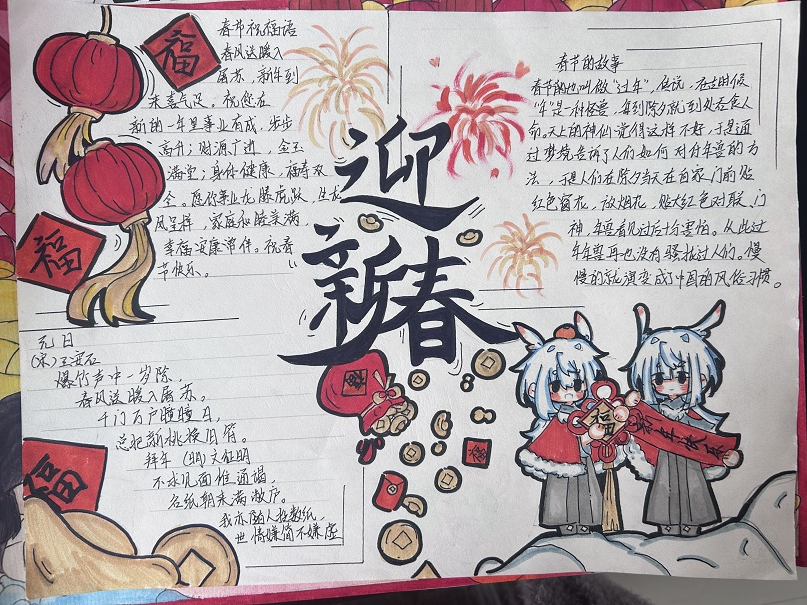 福
春节祝福语
春风送暖入
屠苏，新年到
来喜气足。祝您在
新的一年里事业有成，步步
高升；财源广进，金玉
满堂；身体健康，福寿双
全。愿你事业龙腾虎跃，生龙
风呈祥，家庭和睦美满，
幸福安康常伴。祝春
节快乐。
福
迎
新春
春节的故事
春节的也叫做“过年”，传说，在古时候
“年”是一种怪兽，每到除夕就到处吞食人
命，天上的神仙觉得这样不好，于是通
过梦境告诉了人们如何对付年兽的方
法，于是人们在除夕当天在自家门前贴
红色窗花，放烟花，贴大红色对联，门
神，年兽看见过后十分害怕。从此过
年年兽再也没有骚扰过人们。慢
慢的就演变成了中国的风俗习惯。
元日
(宋)王安石
爆竹声中一岁除，
春风送暖入屠苏。
千门万户曈曈日，
总把新桃换旧符。
拜年 (明)文征明
不求见面惟通谒，
名纸朝来满敝庐。
我亦随人投数纸，
世情嫌简不嫌虚
福
福
新年快乐